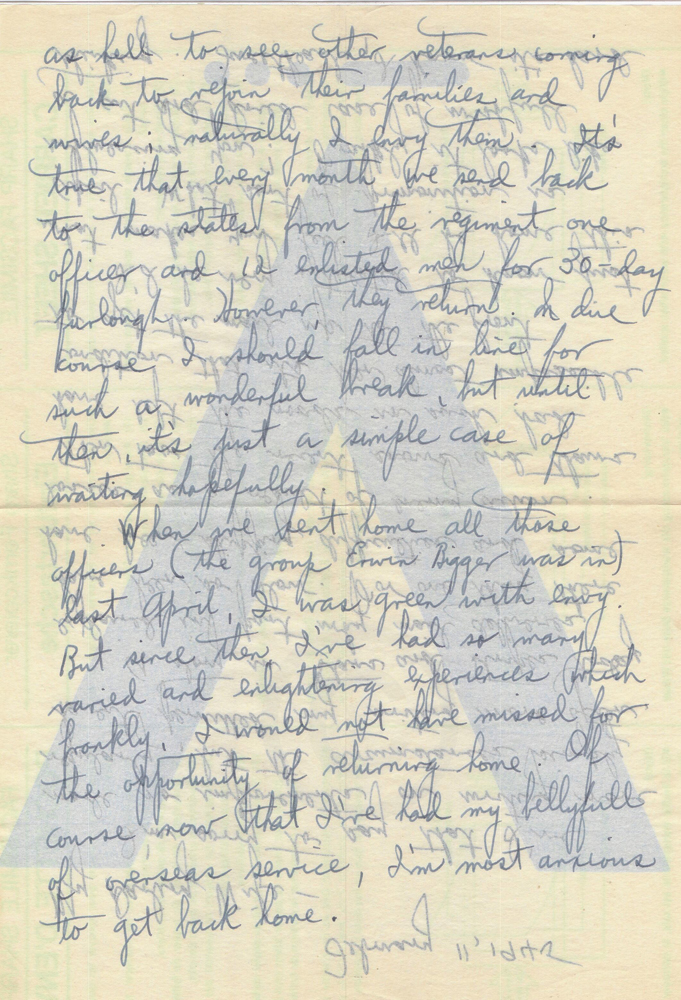 as hell to see other veterans coming
back to rejoin their families and
wives; naturally I envy them. It's
true that every month we send back
to the states from the regiment one
officer and 12 enlisted men for 30 day
furlough. However, they return. In due
course I should fall in line for
such a wonderful break, but until
then, it's just a simple case of
waiting hopefully.
When we sent home all those
officers (the group Erwin Bigger was in)
last April, I was green with envy.
But since then I've had so many
varied and enlightening experiences which
frankly, I would not have missed for
the opportunity of returning home. Of
course now that I've had my bellyfull
of overseas service, I'm most anxious
to get back home.